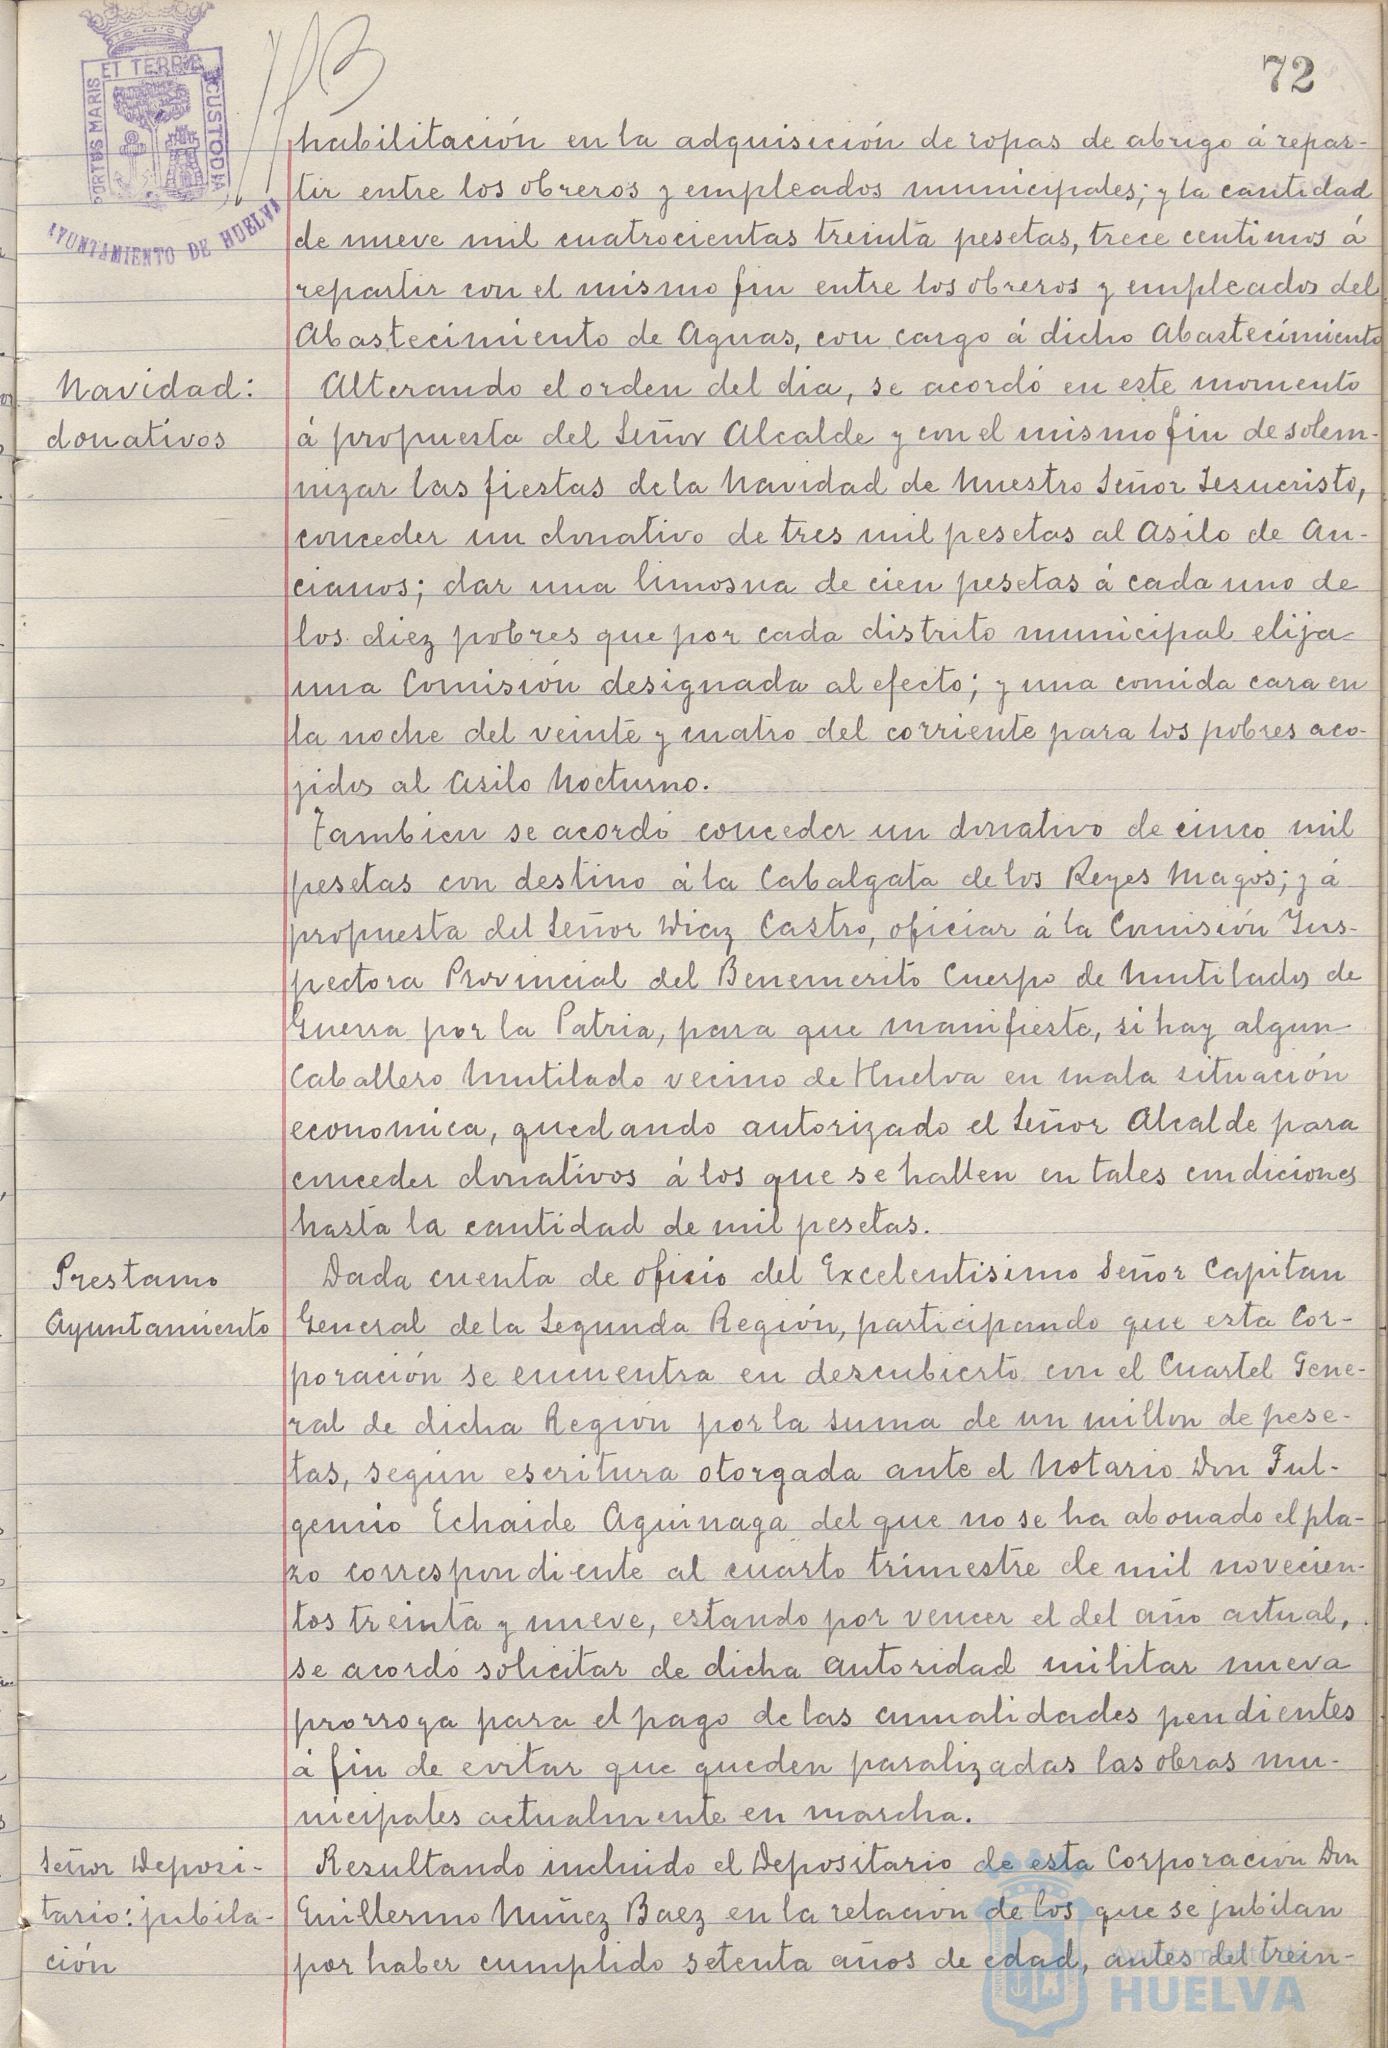 72
PORTUS MARIS ET TERRÆ CUSTODIA
AYUNTAMIENTO DE HUELVA
habilitación en la adquisición de ropas de abrigo á repar-
tir entre los obreros y empleados municipales; y la cantidad
de nueve mil cuatrocientas treinta pesetas, trece centimos á
repartir con el mismo fin entre los obreros y empleados del
Abastecimiento de Aguas, con cargo á dicho Abastecimiento
Navidad:
donativos
Alterando el orden del dia, se acordó en este momento
á propuesta del Señor Alcalde y con el mismo fin de solem-
nizar las fiestas de la Navidad de Nuestro Señor Jesucristo,
conceder un donativo de tres mil pesetas al Asilo de An-
cianos; dar una limosna de cien pesetas á cada uno de
los diez pobres que por cada distrito municipal elija
una Comisión designada al efecto; y una comida cara en
la noche del veinte y cuatro del corriente para los pobres aco-
jidos al Asilo Nocturno.
Tambien se acordó conceder un donativo de cinco mil
pesetas con destino á la Cabalgata de los Reyes Magos; y á
propuesta del Señor Diaz Castro, oficiar á la Comisión Ins-
pectora Provincial del Benemerito Cuerpo de Mutilados de
Guerra por la Patria, para que manifieste, si hay algun
Caballero Mutilado vecino de Huelva en mala situación
economica, quedando autorizado el Señor Alcalde para
conceder donativos á los que se hallen en tales condiciones
hasta la cantidad de mil pesetas.
Prestamo
Ayuntamiento
Dada cuenta de oficio del Excelentisimo Señor Capitan
General de la Segunda Región, participando que esta Cor-
poración se encuentra en descubierto con el Cuartel Gene-
ral de dicha Región por la suma de un millon de pese-
tas, según escritura otorgada ante el Notario Don Ful-
gencio Echaide Aguinaga del que no se ha abonado el pla-
zo correspondiente al cuarto trimestre de mil novecien-
tos treinta y nueve, estando por vencer el del año actual,
se acordó solicitar de dicha autoridad militar nueva
prorroga para el pago de las anualidades pendientes
á fin de evitar que queden paralizadas las obras mu-
nicipales actualmente en marcha.
Señor Deposi-
tario: jubila-
ción
Resultando incluido el Depositario de esta Corporación Don
Guillermo Núñez Baez en la relación de los que se jubilan
por haber cumplido setenta años de edad, antes del trein-
Ayuntamiento de
HUELVA